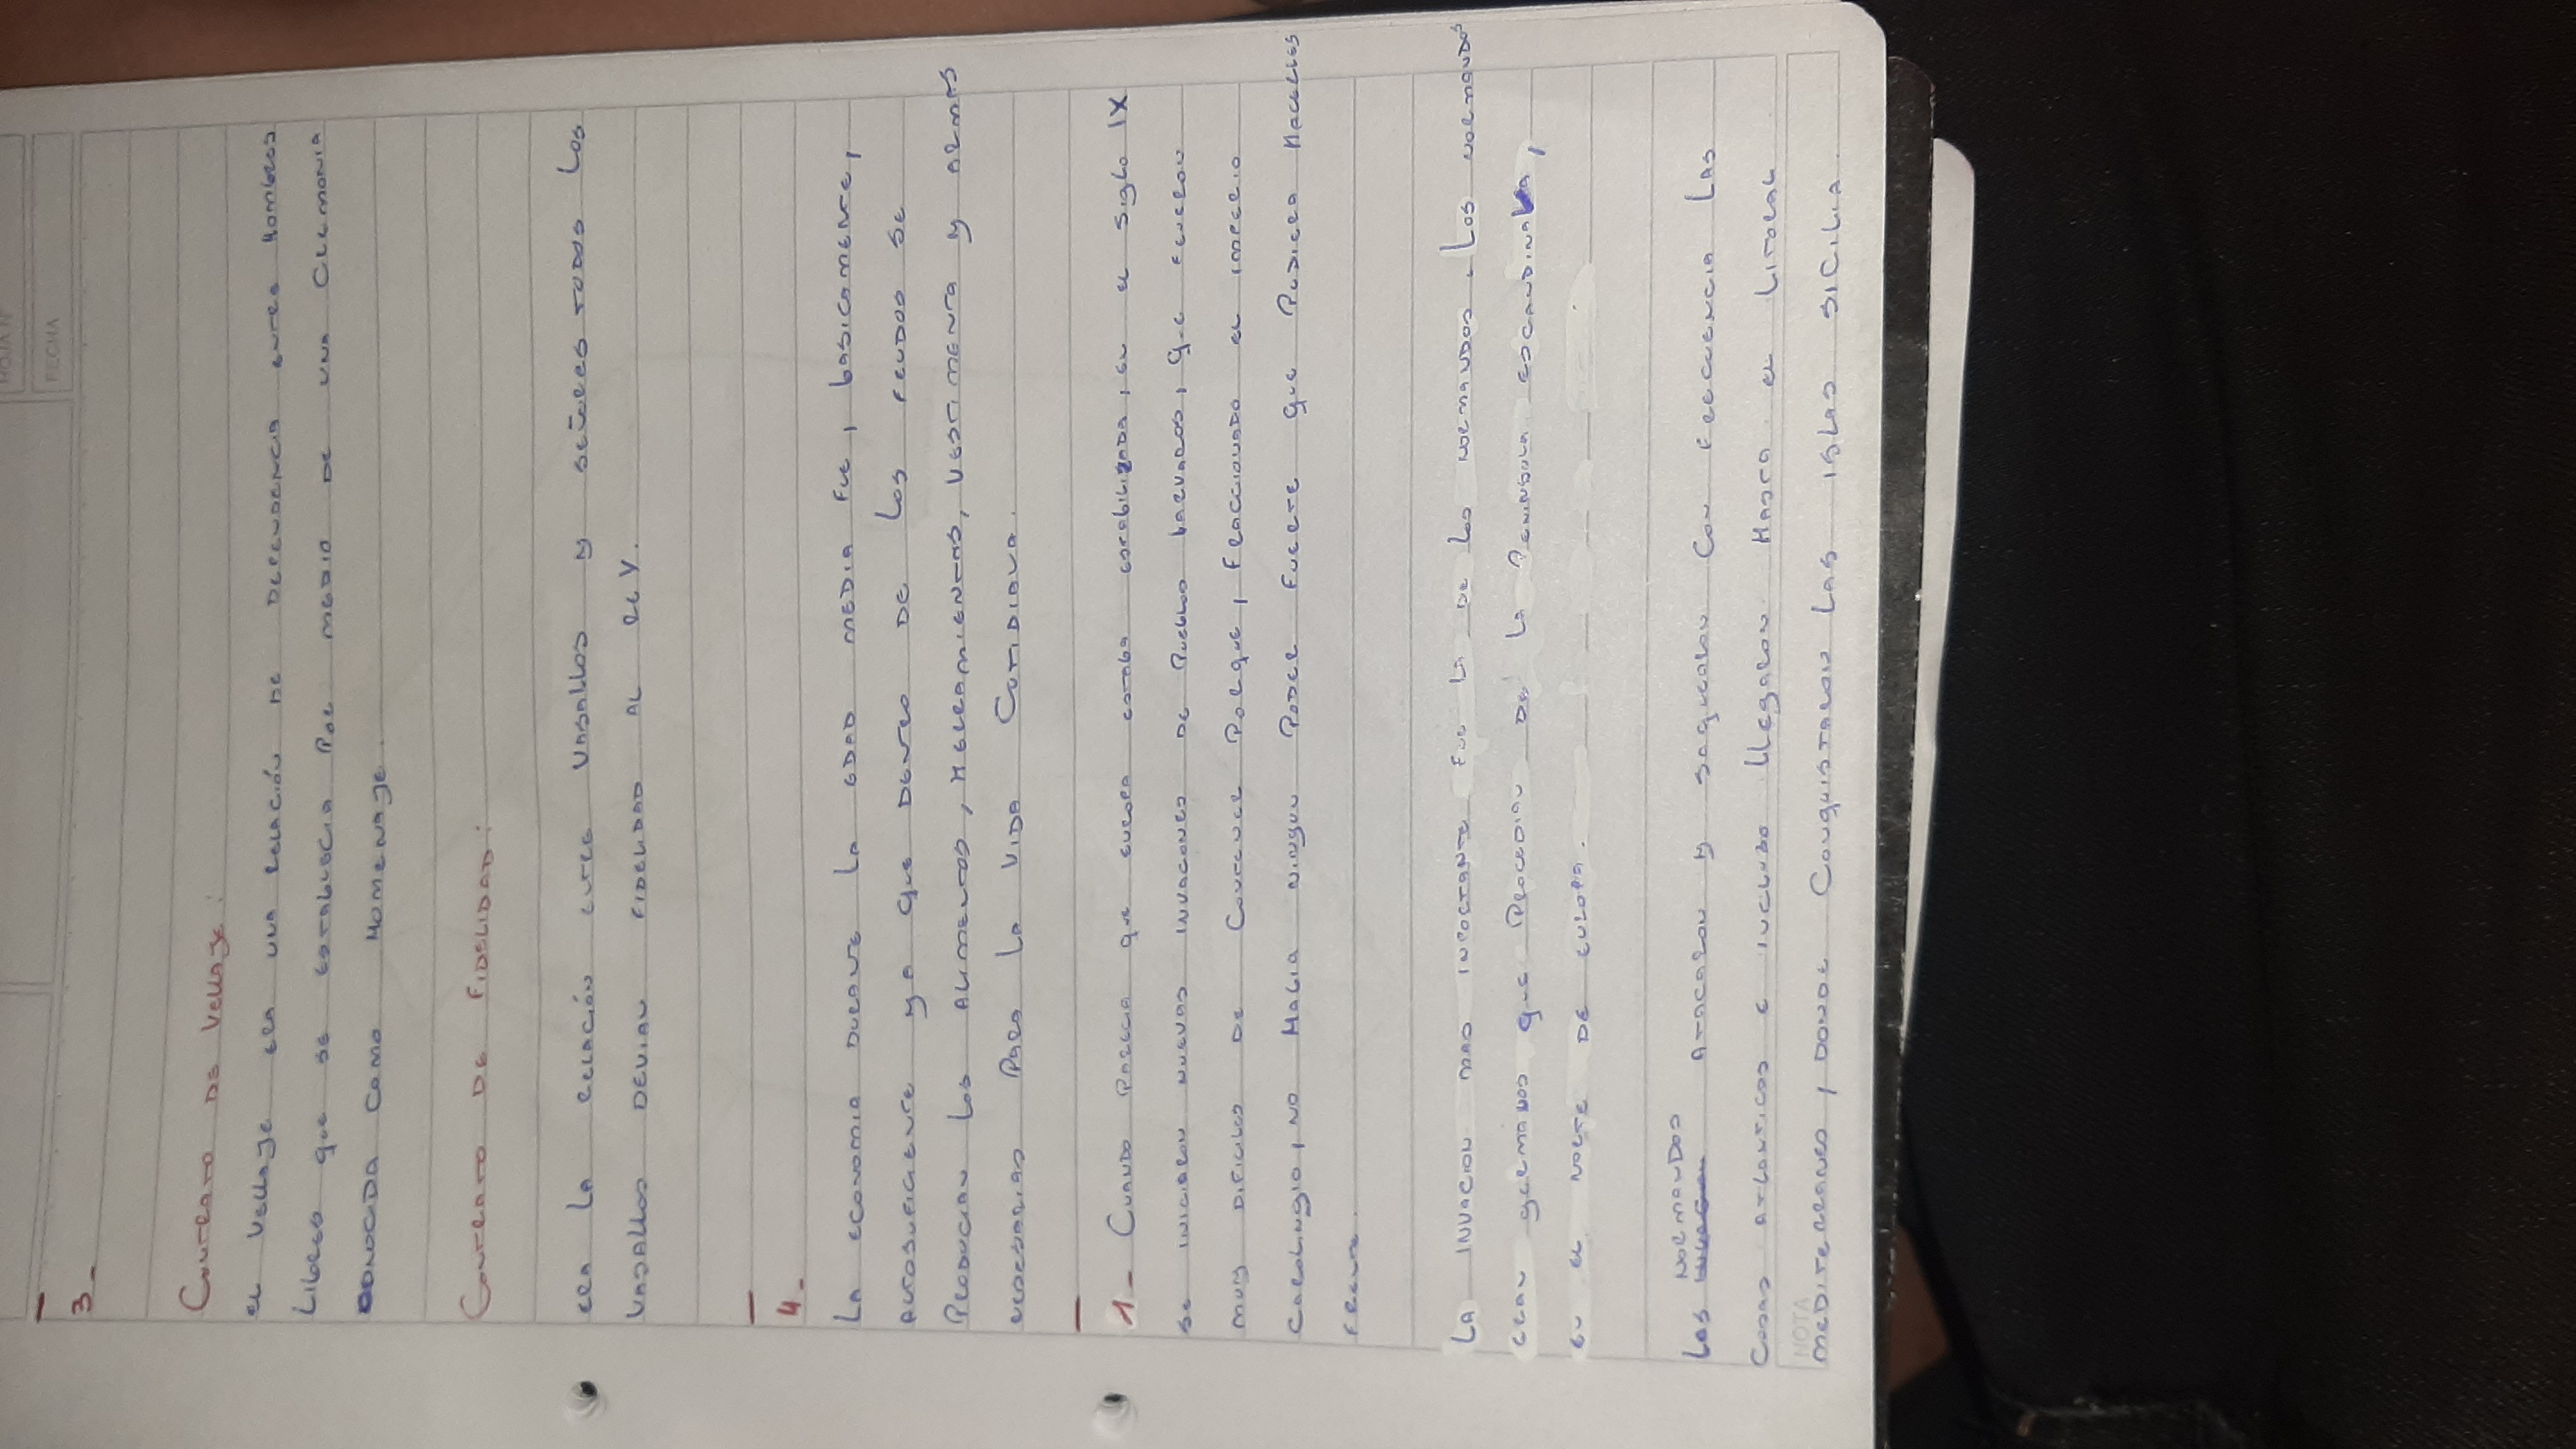 HOJA Nº
FECHA
3-
Contrato de Vellaje:
el vellaje era una relación de dependencia entre Hombres
Libres que se establecia por medio de una ceremonia
conocida como Homenaje.
Contrato de Fidelidad:
era la relación entre vasallos y señores todos los
vasallos devian fidelidad al rey.
4-
La economia durante la edad media fue, basicamente,
autosuficiente ya que dentro de los feudos se
producian los alimentos, Herramientas, vestimenta y armas
necesarias para la vida cotidiana.
1- Cuando parecia que europa estaba estabilizada, en el siglo IX
se iniciaron nuevas invaciones de pueblos barvaros, que fueron
muy dificiles de contener porque, fraccionado el imperio
carolingio, no Habia ningun poder fuerte que pudiera Hacerles
frente.
La invacion mas inportante fue la de los normandos. Los normandos
eran germanos que procedian de la peninsula escandinava,
en el norte de europa.
Los normandos atacaron y saquearon con frecuencia las
cosas atlanticas e incluso llegaron Hasta el litoral
NOTA
mediterraneo, donde conquistaron las islas sicilia.